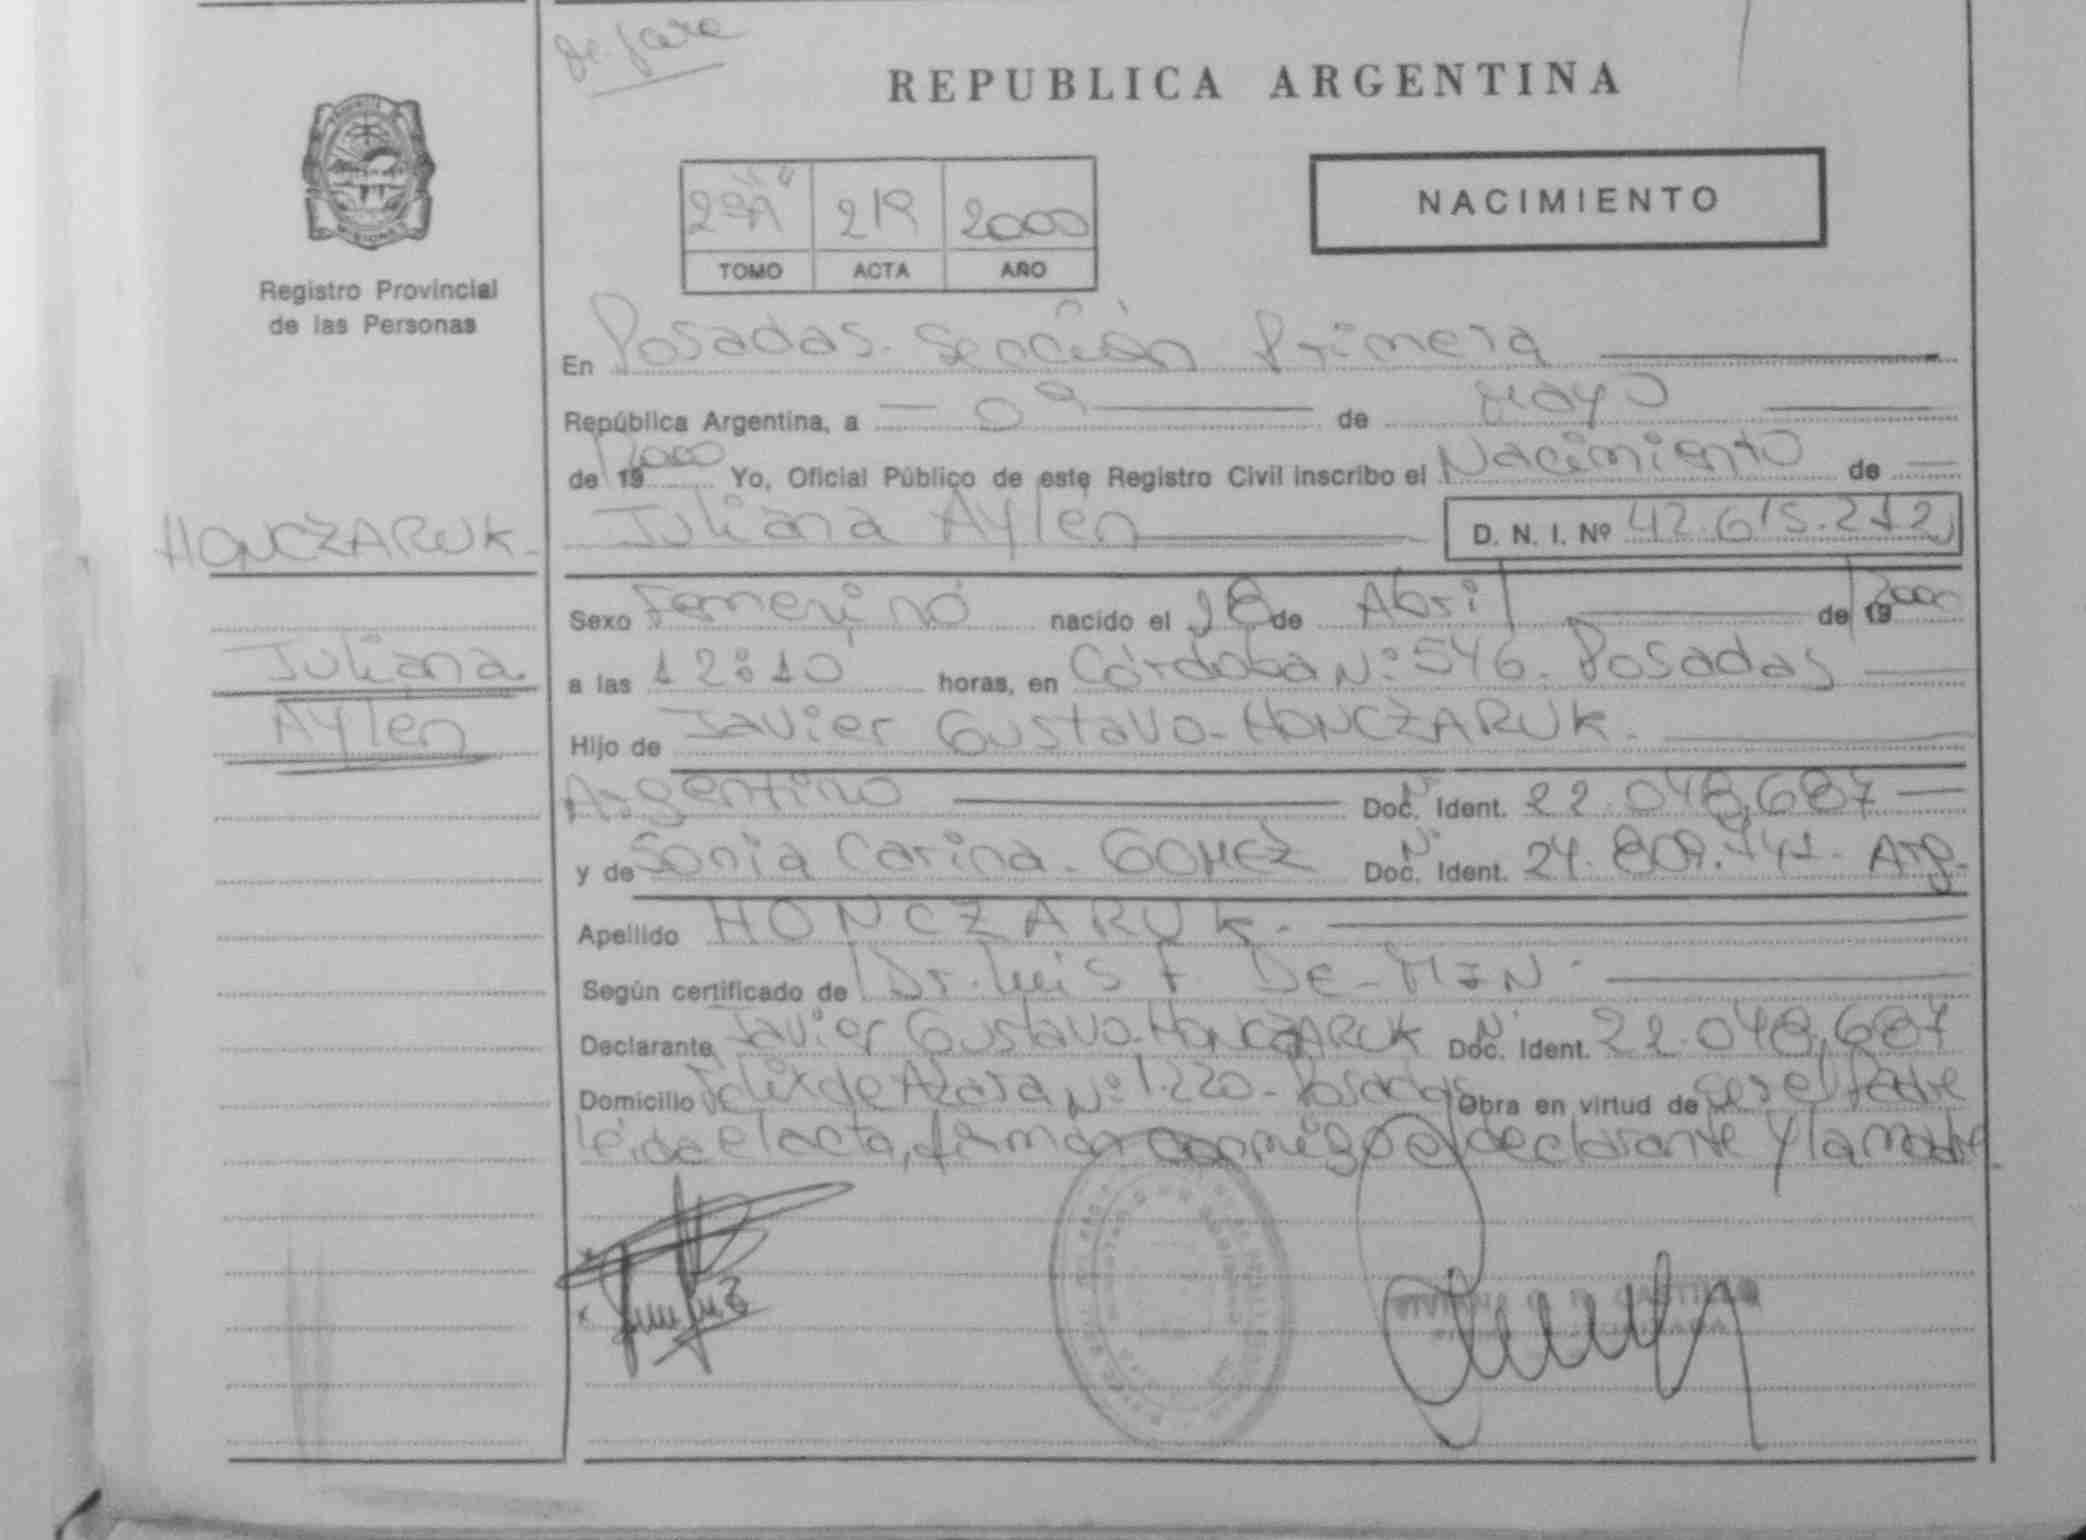 REPUBLICA ARGENTINA
2000
TOMO ACTA AÑO
NACIMIENTO
Registro Provincial
de las Personas
En Posadas. Sección Primera
República Argentina, a 09 de Mayo
de 19 2000 Yo, Oficial Público de este Registro Civil inscribo el Nacimiento de
HONCZARUK.
Juliana Aylén D. N. I. Nº 42.615.212
Sexo Femenino nacido el 28 de Abril de 19 2000
Juliana
Aylén
a las 12:10 horas, en Córdoba Nº 546. Posadas
Hijo de Javier Gustavo-HONCZARUK.
Argentino Doc. Nº Ident. 22.048.687
y de Sonia Carina-GOMEZ Doc. Nº Ident. 24.809.741-Arg.
Apellido HONCZARUK.
Según certificado de Dr. Luis F. DE-MIN.
Declarante Javier Gustavo-HONCZARUK Doc. Nº Ident. 22.048.687
Domicilio Felix de Azara Nº 1.220-Posadas Obra en virtud de ser el Padre
leída el acta, firman conmigo el declarante y la madre